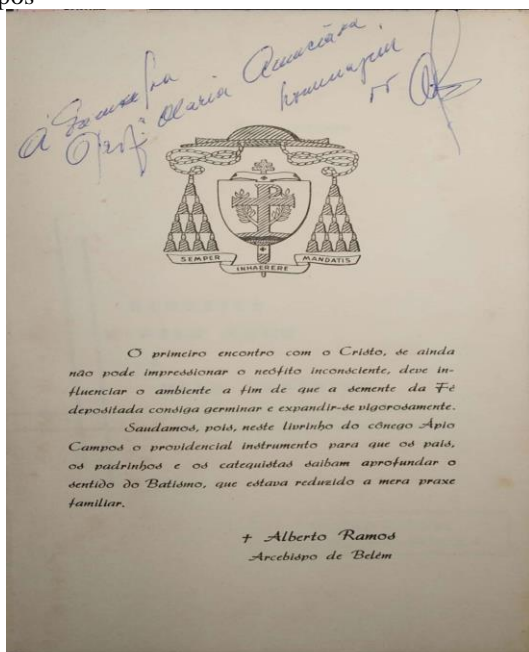 pos
À
Profª Maria Anunciada,
homenagem
SEMPER
INHAERERE
MANDATIS
O primeiro encontro com o Cristo, se ainda
não pode impressionar o neófito inconsciente, deve in-
fluenciar o ambiente a fim de que a semente da Fé
depositada consiga germinar e expandir-se vigorosamente.
Saudamos, pois, neste livrinho do cônego Ápio
Campos o providencial instrumento para que os pais,
os padrinhos e os catequistas saibam aprofundar o
sentido do Batismo, que estava reduzido a mera praxe
familiar.
+ Alberto Ramos
Arcebispo de Belém